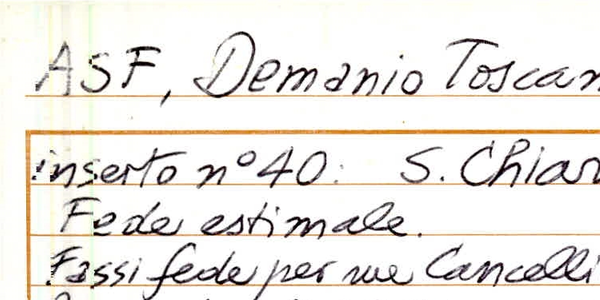 ASF, Demanio Toscan
inserto n° 40: S. Chiar
Fede estimale.
Fassi fede per me Cancelli